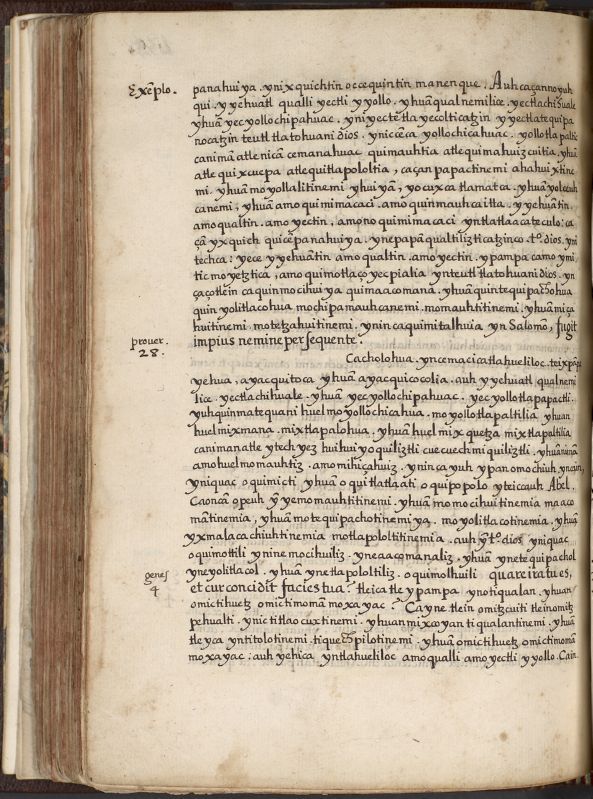 Exẽplo.
panahuiya. ynixquichtin occequintin manenque. Auh caçanno yuh
qui. yyehuatl qualli yectli yyollo. yhuã qualnemilice. yectlachihuale
yhuã yecyollochipahuac. yniyectetlayecolticatzin yyectlatequipa
nocatzin teutl tlatohuani dios. ynicẽca yollochicahuac. yollotlapaltic
canimã atle nicã cemanahuac quimauhtia atle quimahuizcuitia. yhuã
atle quixcuepa atle quitlapololtia, caçan papactinemi ahahuixtine
mi. yhuã moyollalitinemi yhuiyã, yocuxca tlamatca. yhuã yoloceuh
canemi, yhuã amo quimimacaci. amo quinmauhcaitta. yyehuãtin.
amo qualtin. amo yectin. amo no quimimacaci yntlatlacatecolo: ca
çã yxquich quicẽpanahuiya. ynepapã qualtiliztlicatzinco. tº. dios. yni
techca: yece yyehuãtin amo qualtin. amo yectin. ypampa camo ymi
tic moyetztica, amo quimotlaçoyecpialia ynteutl tlatohuani dios. yn
çaçotlein ca quinmocihuiya quimaacomana. yhuã quintequipachohua
quinyolitlacohua mochipa mauhcanemi. momauhtitinemi. yhuã miça
huitinemi. motetzahuitinemi. ynin ca quimitalhuia yn Salomõ, fugit
prouer.
28.
impius nemine persequente.
Cacholohua. yncemacicatlahueliloc. teixpãpa
yehua, ayac quitoca yhuã ayac quicocolia. auh yyehuatl qualnemi
lice. yectlachihuale. yhuã yecyollochipahuac. yecyollotlapactli.
yuhquinmatequani huel moyollochicahua. moyollotlapaltilia yhuan
huel mixmana. mixtlapalohua. yhuã huel mixquetza mixtlapaltilia
canimanatle ytech yez huihuiyoquiliztli cuecuechmiquiliztli. yhuã nimã
amo huel momauhtiz. amo mihiçahuiz. ynin ca yuh ypan omochiuh yncain,
yniquac oquimicti yhuã oquitlatlaati oquipopolo yteiccauh Abel.
Caoncã opeuh yyemomauhtitinemi. yhuã momocihuitinemia maaco
mãtinemia, yhuã motequipachotinemiya. moyolitlacotinemia, yhuã
yxmalacachiuhtinemia motlapololtitinemia. auh y tº. dios yniquac
oquimottili ynine mocihuiliz. yneaacomanaliz. yhuã ynetequipachol
yneyolitlacol. yhuã ynetlapololtiliz. oquimolhuili quare iratus es,
genes
4
et cur concidit facies tua? tleica tle ypampa ynotiqualan. yhuan
omictihuetz omictimomã moxayac? Ca yne tlein omitzcuiti tlein omitz
pehualti. ynictitlaocuxtinemi. yhuan mixcoyan tiqualantinemi. yhuã
tle yca yntitolotinemi. tiquechpilotinemi. yhuã omictihuetz omictimomã
moxayac: auh yehica yntlahueliloc amo qualli amo yectli yyollo. Cain.